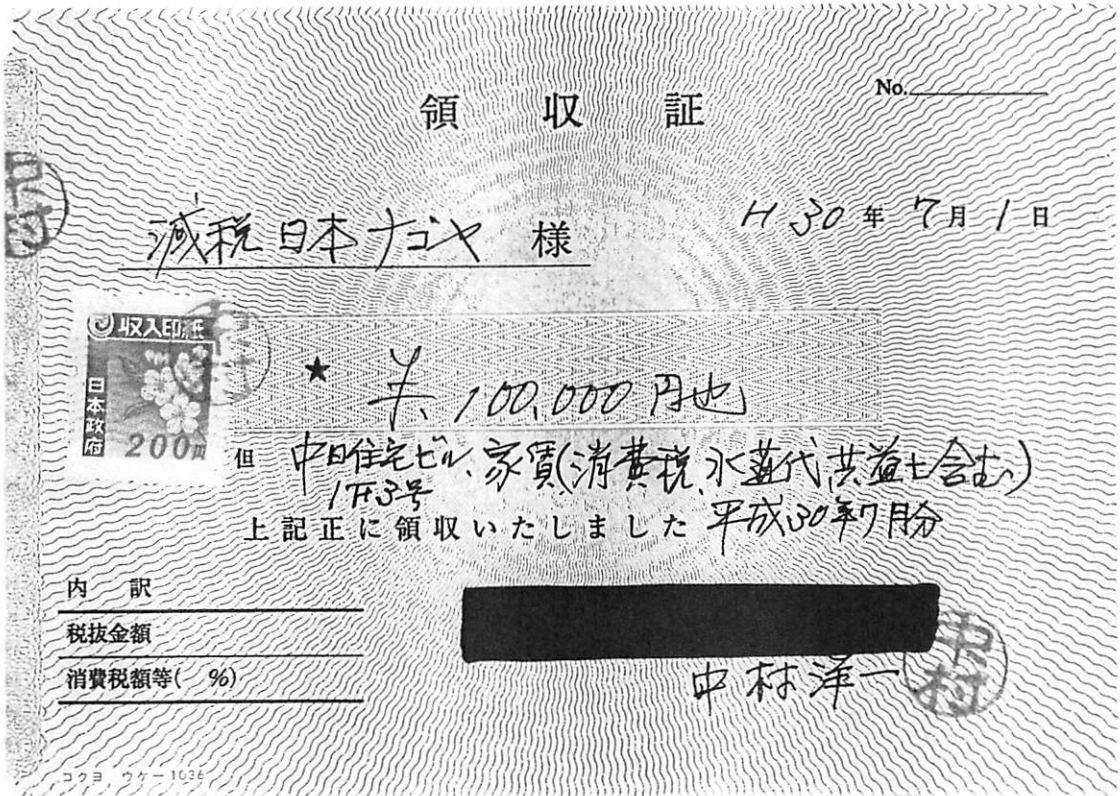 No.
領収証
H30年7月1日
減税日本ナゴヤ 様
中村
収入印紙
日本政府
200円
中村
★ ¥.100,000円也
但 中日住宅ビル、家賃(消費税、水道代、共益費含む)
1F3号
上記正に領収いたしました 平成30年7月分
内訳
税抜金額
消費税額等( %)
中村洋一
中村
コクヨ ウケー1036